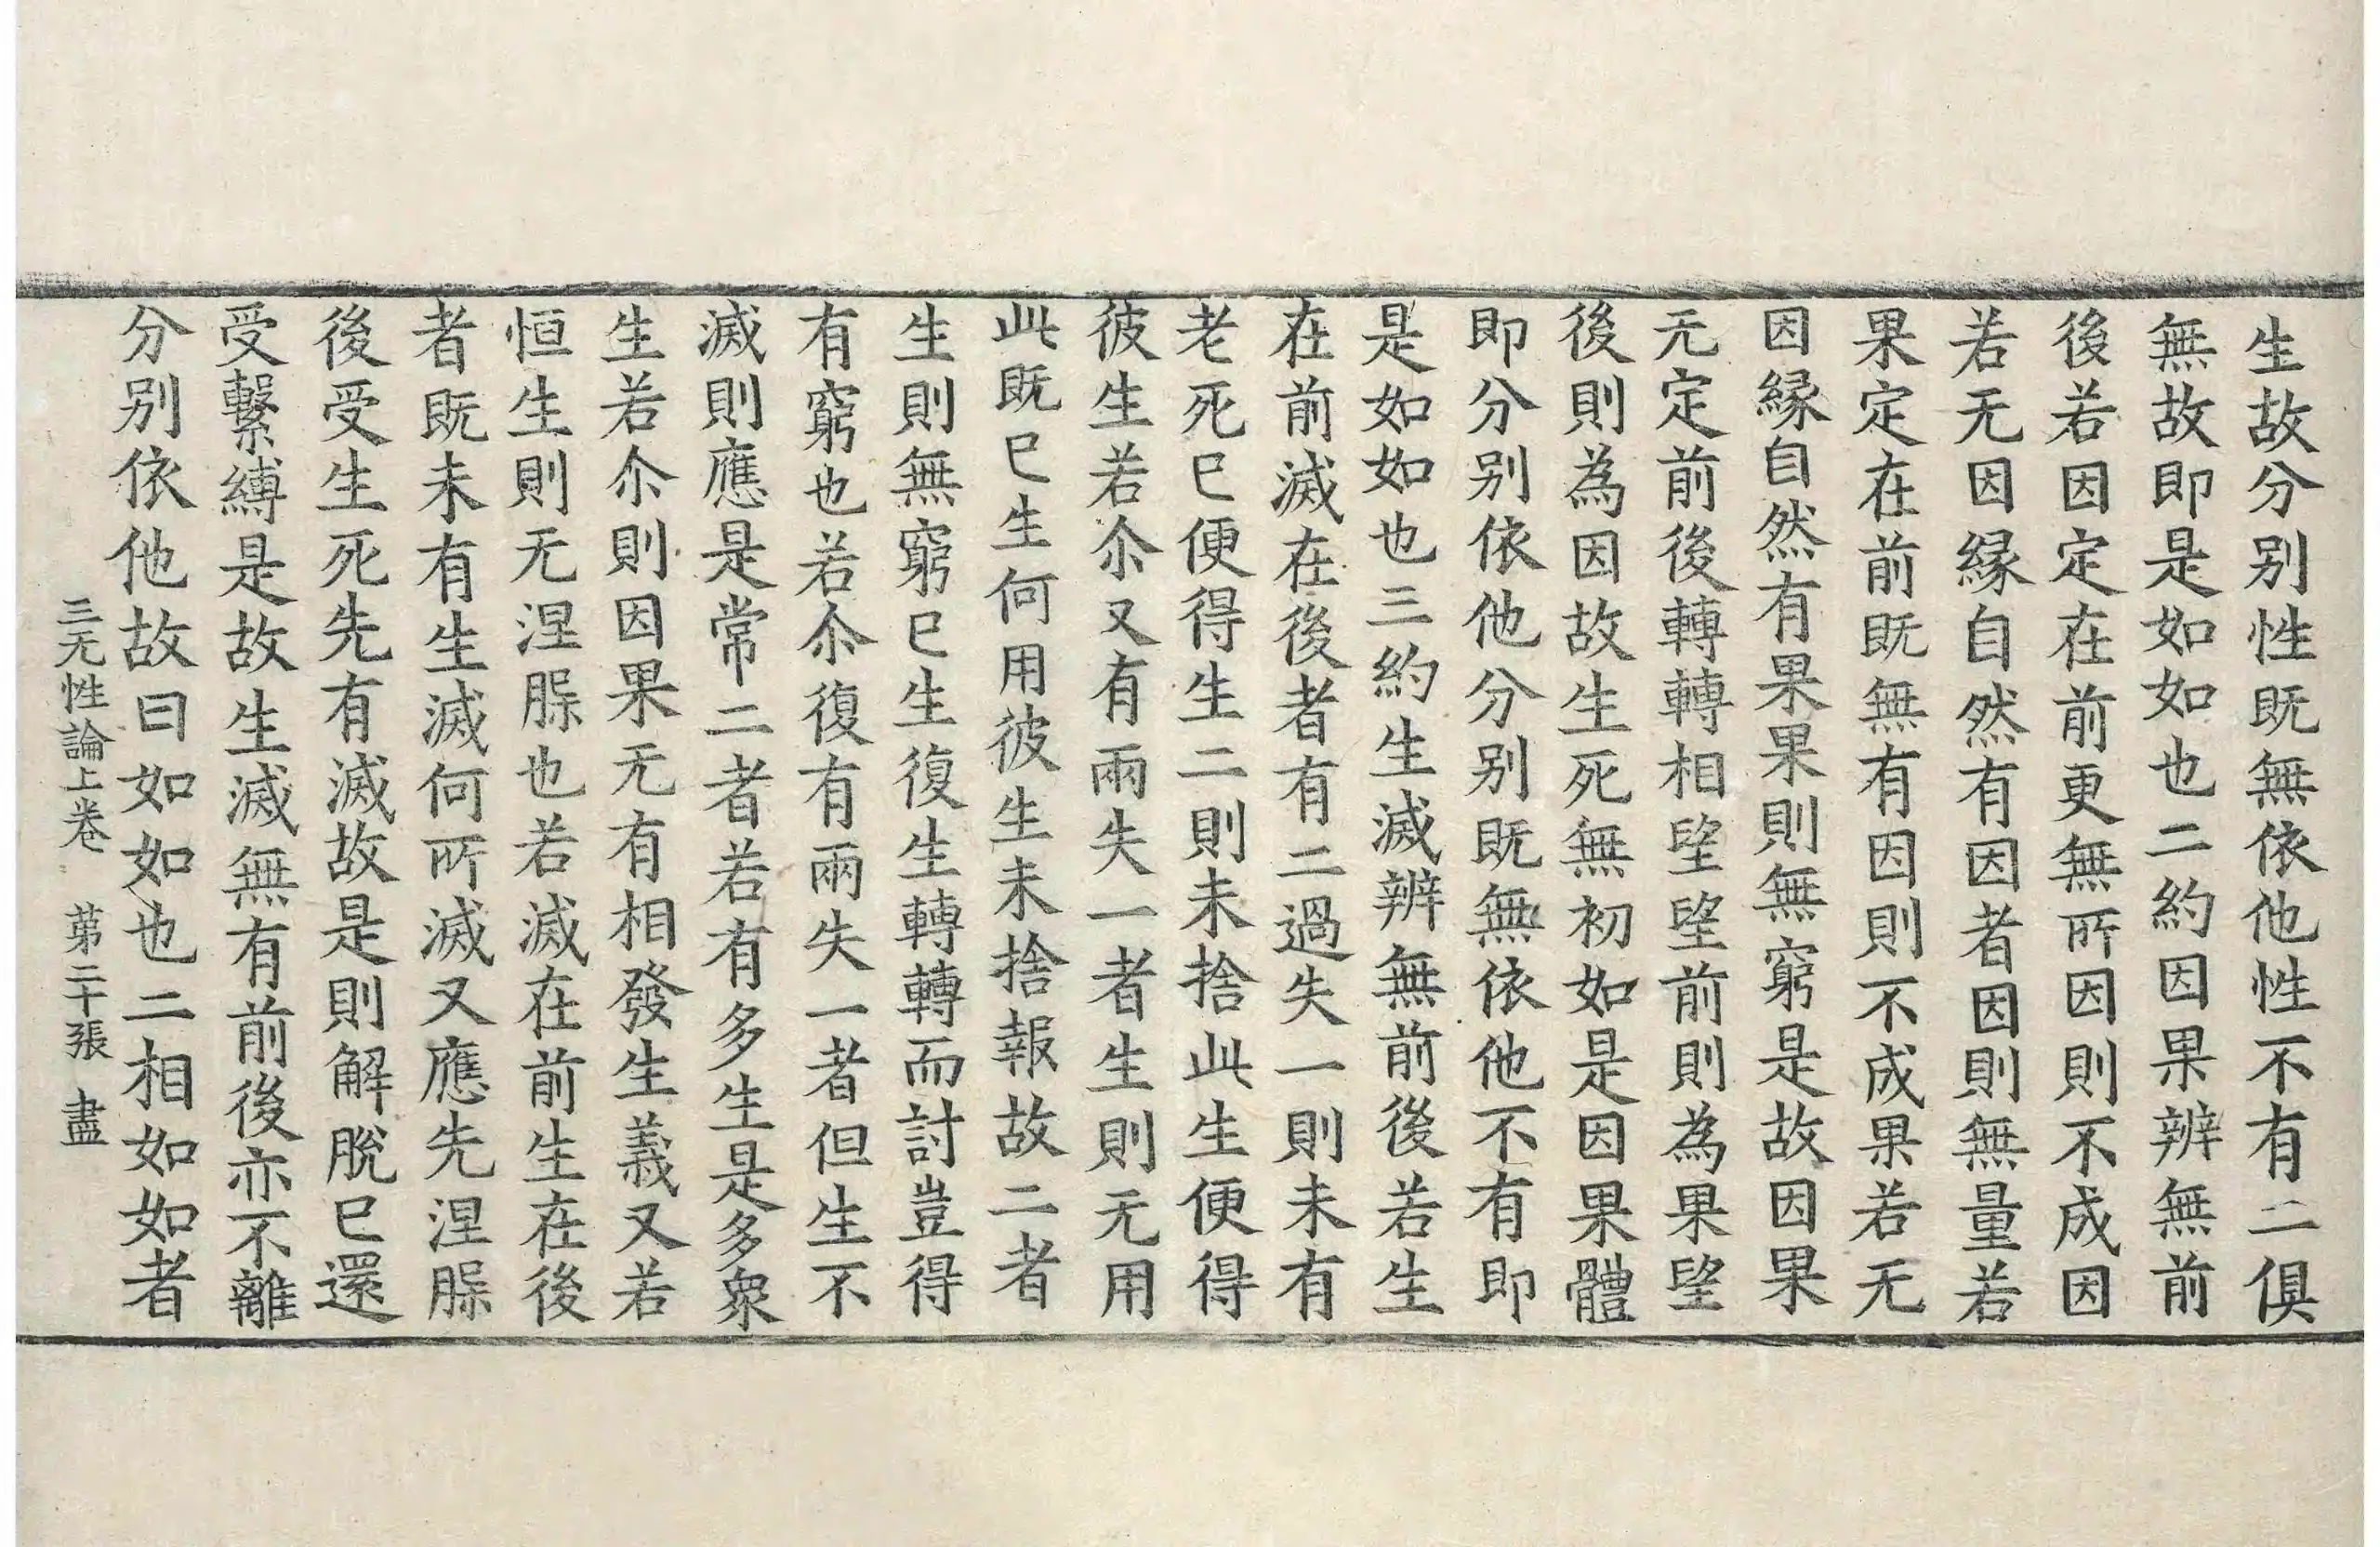 生故分别性既無依他性不有二俱
無故即是如如也二約因果辨無前
後若因定在前更無所因則不成因
若无因縁自然有因者因則無量若
果定在前既無有因則不成果若无
因縁自然有果果則無窮是故因果
无定前後轉轉相望望前則為果望
後則為因故生死無初如是因果體
即分别依他分别既無依他不有即
是如如也三約生滅辨無前後若生
在前滅在後者有二過失一則未有
老死巳便得生二則未捨此生便得
彼生若尒又有兩失一者生則无用
此既巳生何用彼生未捨報故二者
生則無窮巳生復生轉轉而討豈得
有窮也若尒復有兩失一者但生不
滅則應是常二者若有多生是多衆
生若尒則因果无有相發生義又若
恒生則无涅槃也若滅在前生在後
者既未有生滅何所滅又應先涅槃
後受生死先有滅故是則解脫巳還
受繫縛是故生滅無有前後亦不離
分别依他故曰如如也二相如如者
三无性論上卷 苐二十張 盡